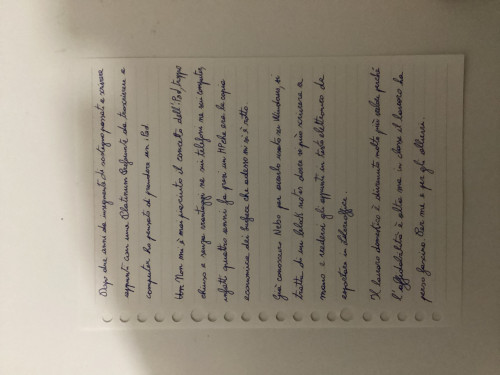 Dopo due anni da insegnante di sostegno passati a scrivere
appunti con una Platinum Prefounte da trascrivere a
computer ho pensato di prendere un iPad
Non mi è mai piaciuto il concetto dell'iPad, troppo
chiuso e senza vantaggi né sui telefoni né sui computer,
infatti quattro anni fa presi un HP che era la copia
economica dei Surface che adesso mi si è rotto.
Già conoscevo Nebo per averlo usato su Windows, si
tratta di una block notes dove si può scrivere a
mano e rendere gli appunti in testo elettronico da
esportare in Libreoffice.
Il lavoro domestico è diventato molto più solido perché
l'affidabilità è alta ma in classe il lavoro ha
perso fascino. Per me e per gli allievi